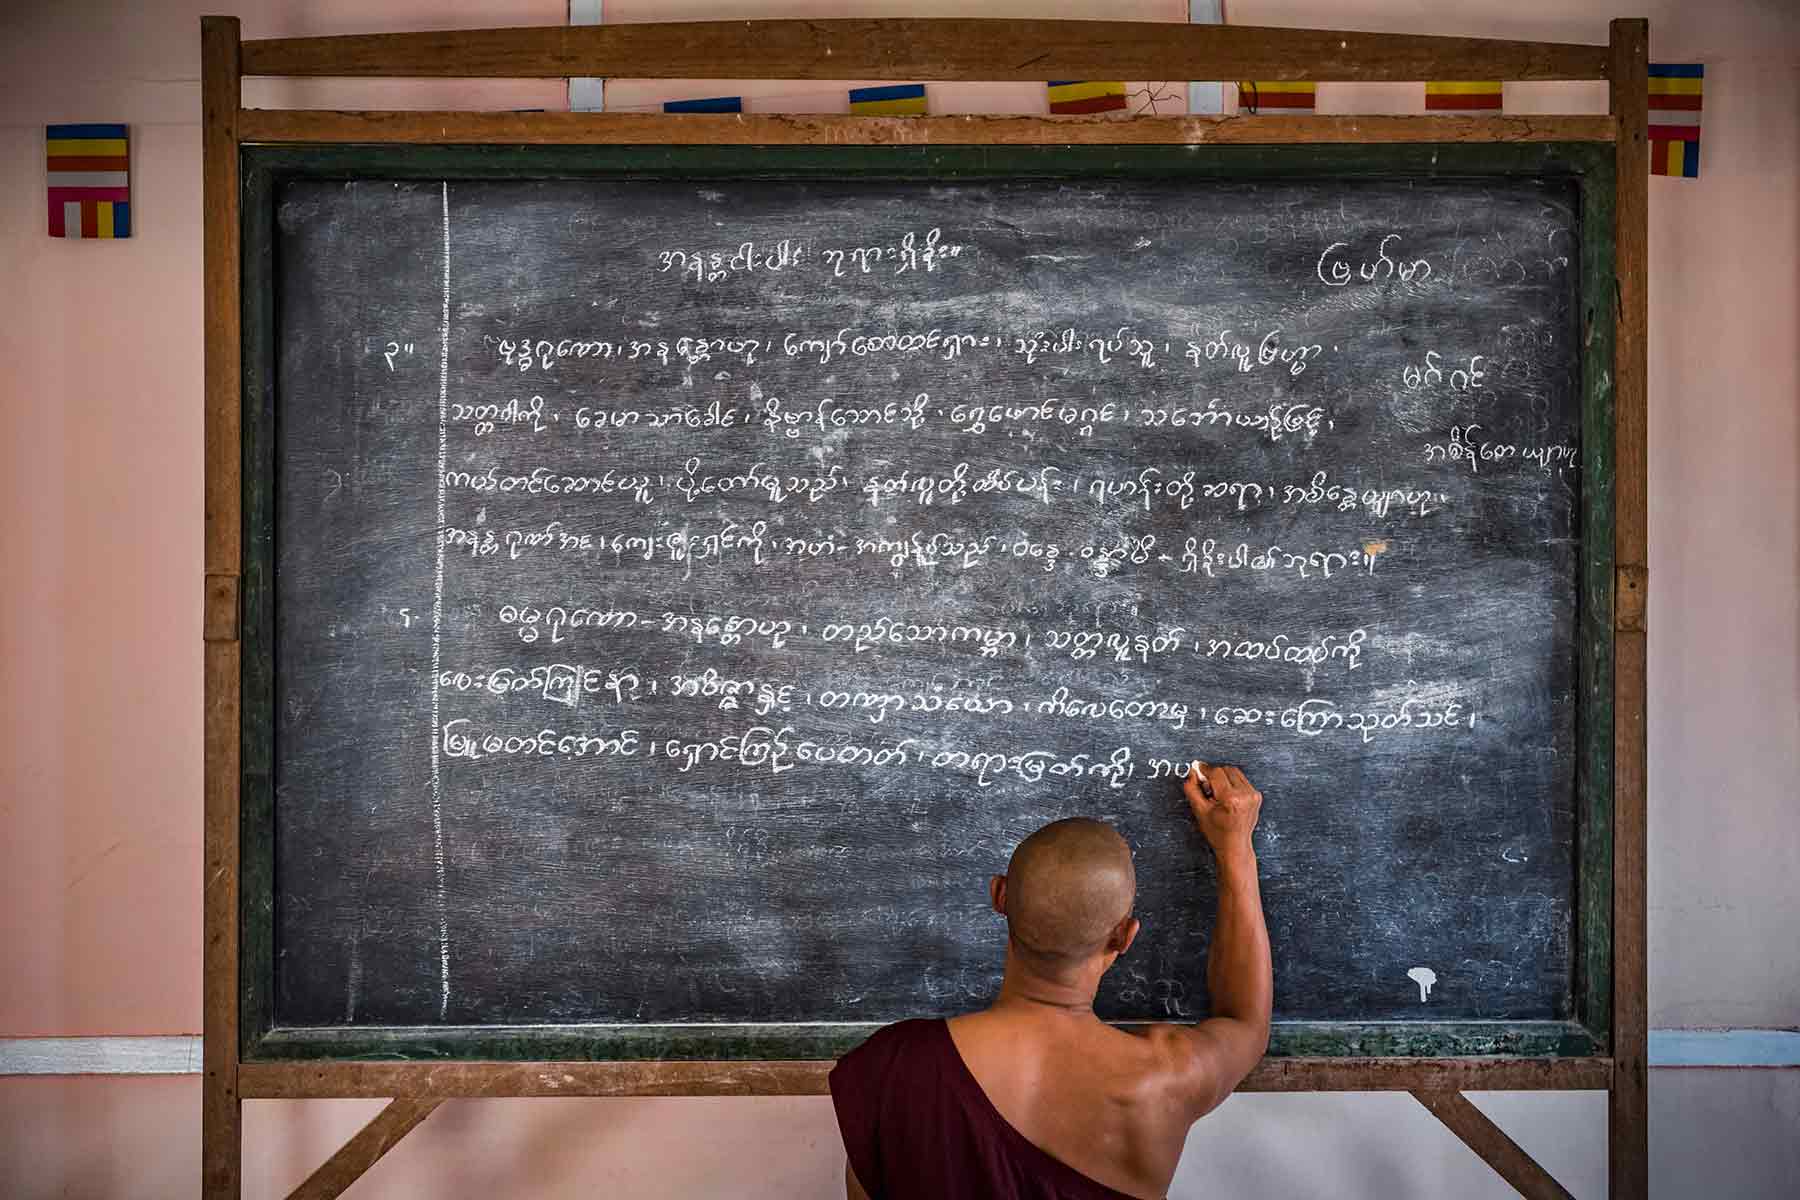 အနန္တငါးပါး ဘုရားရှိခိုး။
ဗြဟ်မာ
၃။ ဗုဒ္ဓဂုဏော၊ အနန္တောဟု၊ ကျော်စောတင်ရှား၊ သုံးပါးရပ်သူ၊ နတ်လူဗြဟ္မာ၊
မဂ်ဂင်
သတ္တဝါကို၊ ခေမာသာခေါင်၊ နိဗ္ဗာန်သောင်သို့၊ ရွှေဖောင်မဂ္ဂင်၊ သင်္ဘောယာဉ်ဖြင့်၊
အစိန်တေယျာဟု
ကယ်တင်ဆောင်ယူ၊ ပို့တော်မူသည်၊ နတ်လူတို့ထိပ်ပန်း၊ ရဟန်းတို့ဆရာ၊ အစိန္တေယျာဟု၊
အနန္တ ဂုဏ်အင်၊ ကျေးဇူးရှင်ကို၊ အဟံ - အကျွန်ုပ်သည်၊ ဝန္ဒေ - ဝန္ဒာမိ - ရှိခိုးပါ၏ဘုရား။
၄. ဓမ္မဂုဏော - အနန္တောဟု၊ တည်သောကမ္ဘာ၊ သတ္တလူနတ်၊ အထပ်ထပ်ကို
လေးမြတ်ကြည်နူာ၊ အဝိဇ္ဇာနှင့်၊ တဏှာသံယော၊ ကိလေတောမှ၊ ဆေးကြောသုတ်သင်၊
မြူမတင်အောင်၊ ရှောင်ကြဉ်စေတတ်၊ တရားမြတ်ကို၊ အပ